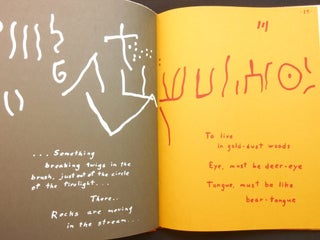 . . . Something
breaking twigs in the
brush, just out of the circle
of the firelight. . .
There..
Rocks are moving
in the stream...
To live
in gold-dust woods
Eye, must be deer-eye
Tongue, must be like
bear-tongue